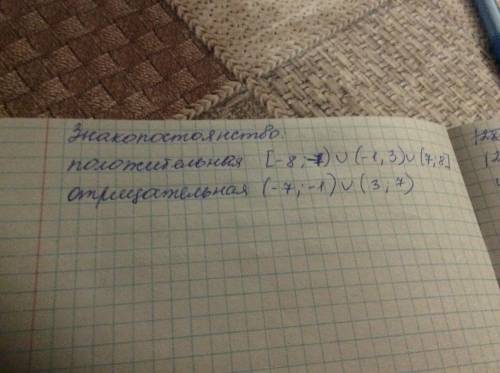 Знакопостоянство:
положительная [-8; -7) ∪ (-1, 3) ∪ (7; 8]
отрицательная (-7; -1) ∪ (3; 7)